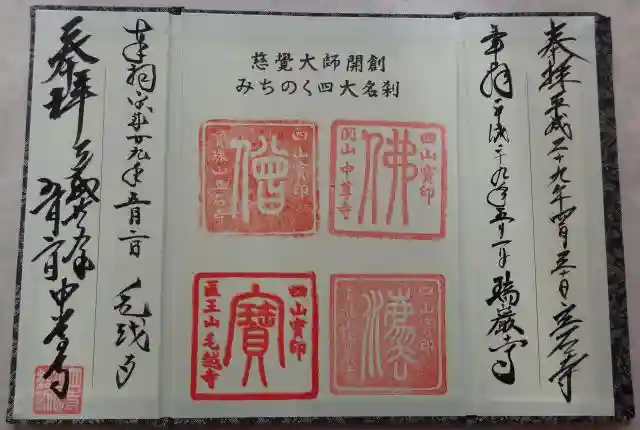 奉拝 平成二十九年四月三十日 立石寺
奉拝 平成二十九年五月一日 瑞巌寺
慈覺大師開創
みちのく四大名刹
四山寳印
佛
関山 中尊寺
四山寳印
僧
寳珠山立石寺
四山寳印
法
四山寳印
寳
医王山毛越寺
平成廿九年五月二日 毛越寺
奉拝 平成廿九年
五月二日 中尊寺